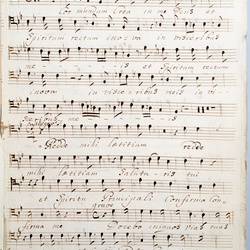 cor mundum Crea in me Deus et
Spiritum rectum inova in visceribus
me - - - is et Spiritum rectum
inova in visceribus meis in vi-
sceribus me - - is
Redde mihi laetitiam redde
mihi laetitiam Saluta-ris tui
et Spiritu Principali Confirma Con-
firma me Docebo iniquos vias tuas